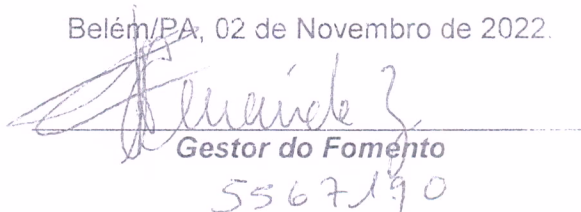 Belém/PA, 02 de Novembro de 2022.
Gestor do Fomento
5567190